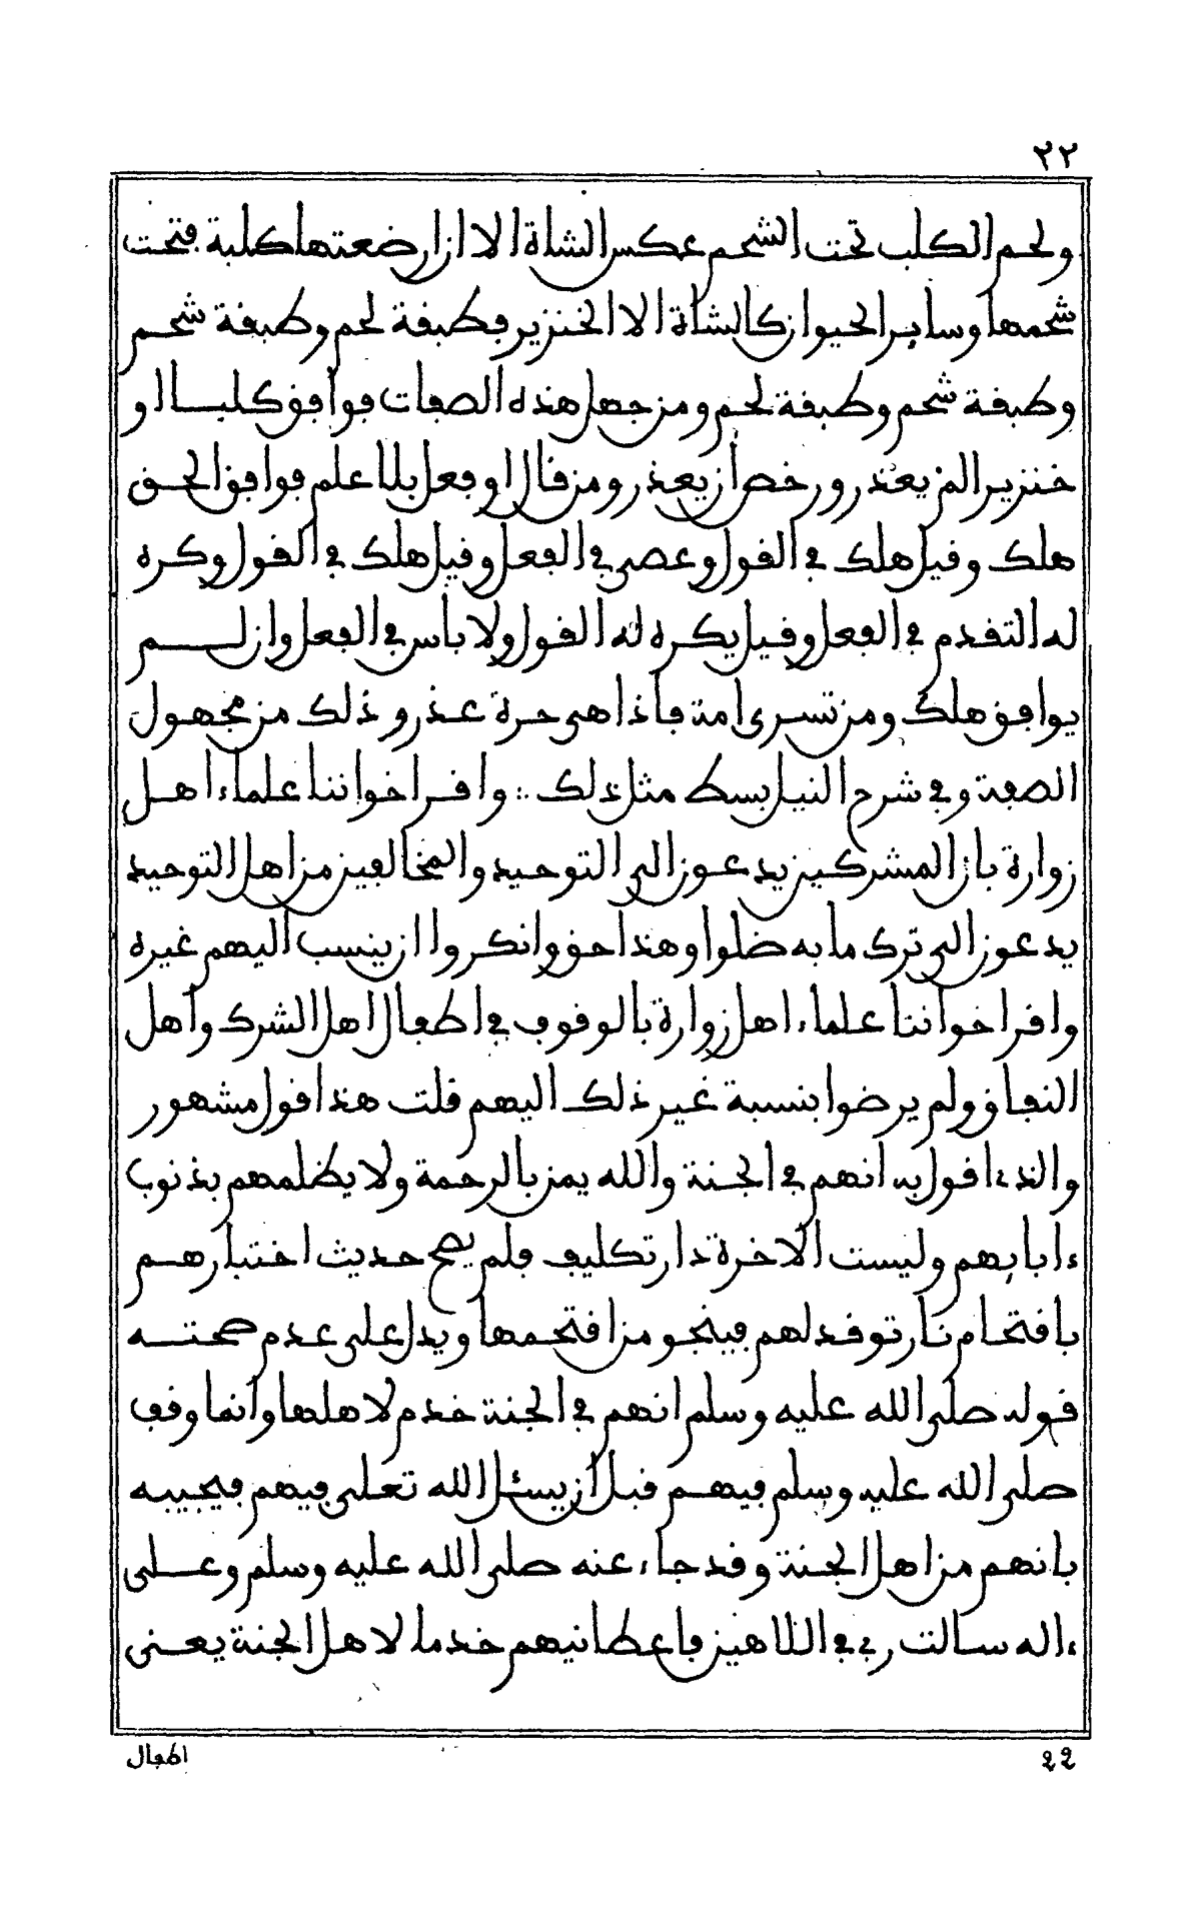 ٢٢
ولحم الكلب تحت الشحم عكس الشاة الا ان ارضعتها كلبة فتحت
شحمها وساير الحيوان كالشاة الا الخنزير فطبفة لحم وطبفة شحم
وطبفة شحم وطبفة لحم ومن جهل هذه الصفات فوافق كلبا او
خنزيرا لم يعذر ورخص ان يعذر ومن قال او فعل بلا علم فوافق الحق
هلك وقيل هلك في القول وعصى في الفعل وقيل هلك في القول وكره
له التقدم في الفعل وقيل يكره له القول ولا باس في الفعل وان لم
يوافق هلك ومن تسرى امة فاذا هي حرة عذر وذلك من مجهول
الصفة وفي شرح النيل بسط مثل ذلك :: واقر اخواننا علماء اهل
زوارة بان المشركين يدعون الى التوحيد والمخالفين من اهل التوحيد
يدعون الى ترك ما به ضلوا وهذا حق وانكروا ان ينسب اليهم غيره
واقر اخواننا علماء اهل زوارة بالوقوف في اطفال اهل الشرك واهل
النفاق ولم يرضوا بنسبة غير ذلك اليهم قلت هذا قول مشهور
والذي اقول به انهم في الجنة والله يمن بالرحمة ولا يظلمهم بذنوب
ءابايهم وليست الاخرة دار تكليف فلم يصح حديث اختبارهم
باقتحام نار توقد لهم فينجو من اقتحمها ويدل على عدم صحته
قوله صلى الله عليه وسلم انهم في الجنة خدم لاهلها وانما وقف
صلى الله عليه وسلم فيهم قبل ان يسئل الله تعلى فيهم فيجيبه
بانهم من اهل الجنة وقد جاء عنه صلى الله عليه وسلم وعلى
ءاله سالت ربي في اللاهين فاعطانيهم خدما لاهل الجنة يعني
٢٢
اطفال